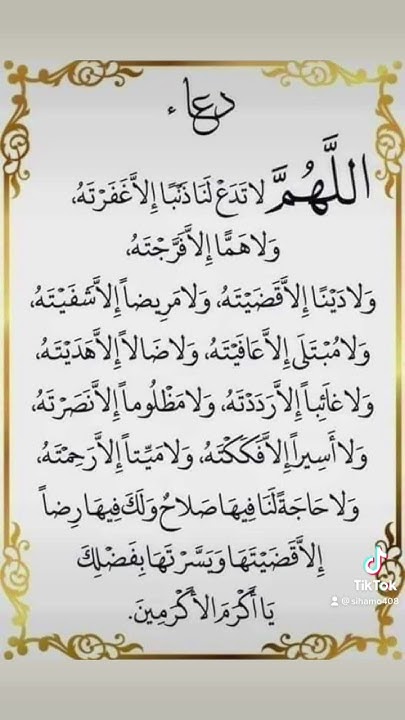 دعاء
اللَّهُمَّ لَا تَدَعْ لَنَا ذَنْبًا إِلاَّ غَفَرْتَهُ،
وَلَا هَمًّا إِلاَّ فَرَّجْتَهُ،
وَلَا دَيْنًا إِلاَّ قَضَيْتَهُ، وَلَا مَرِيضاً إِلاَّ شَفَيْتَهُ،
وَلَا مُبْتَلَى إِلاَّ عَافَيْتَهُ، وَلَا ضَالاً إِلاَّ هَدَيْتَهُ،
وَلَا غَائِباً إِلاَّ رَدَدْتَهُ، وَلَا مَظْلُوماً إِلاَّ نَصَرْتَهُ،
وَلَا أَسِيراً إِلاَّ فَكَكْتَهُ، وَلَا مَيِّتاً إِلاَّ رَحِمْتَهُ،
وَلَا حَاجَةً لَنَا فِيهَا صَلَاحٌ وَلَكَ فِيهَا رِضاً
إِلاَّ قَضَيْتَهَا وَيَسَّرْتَهَا بِفَضْلِكَ
يَا أَكْرَمَ الأَكْرَمِينَ.
TikTok
@sihamo408